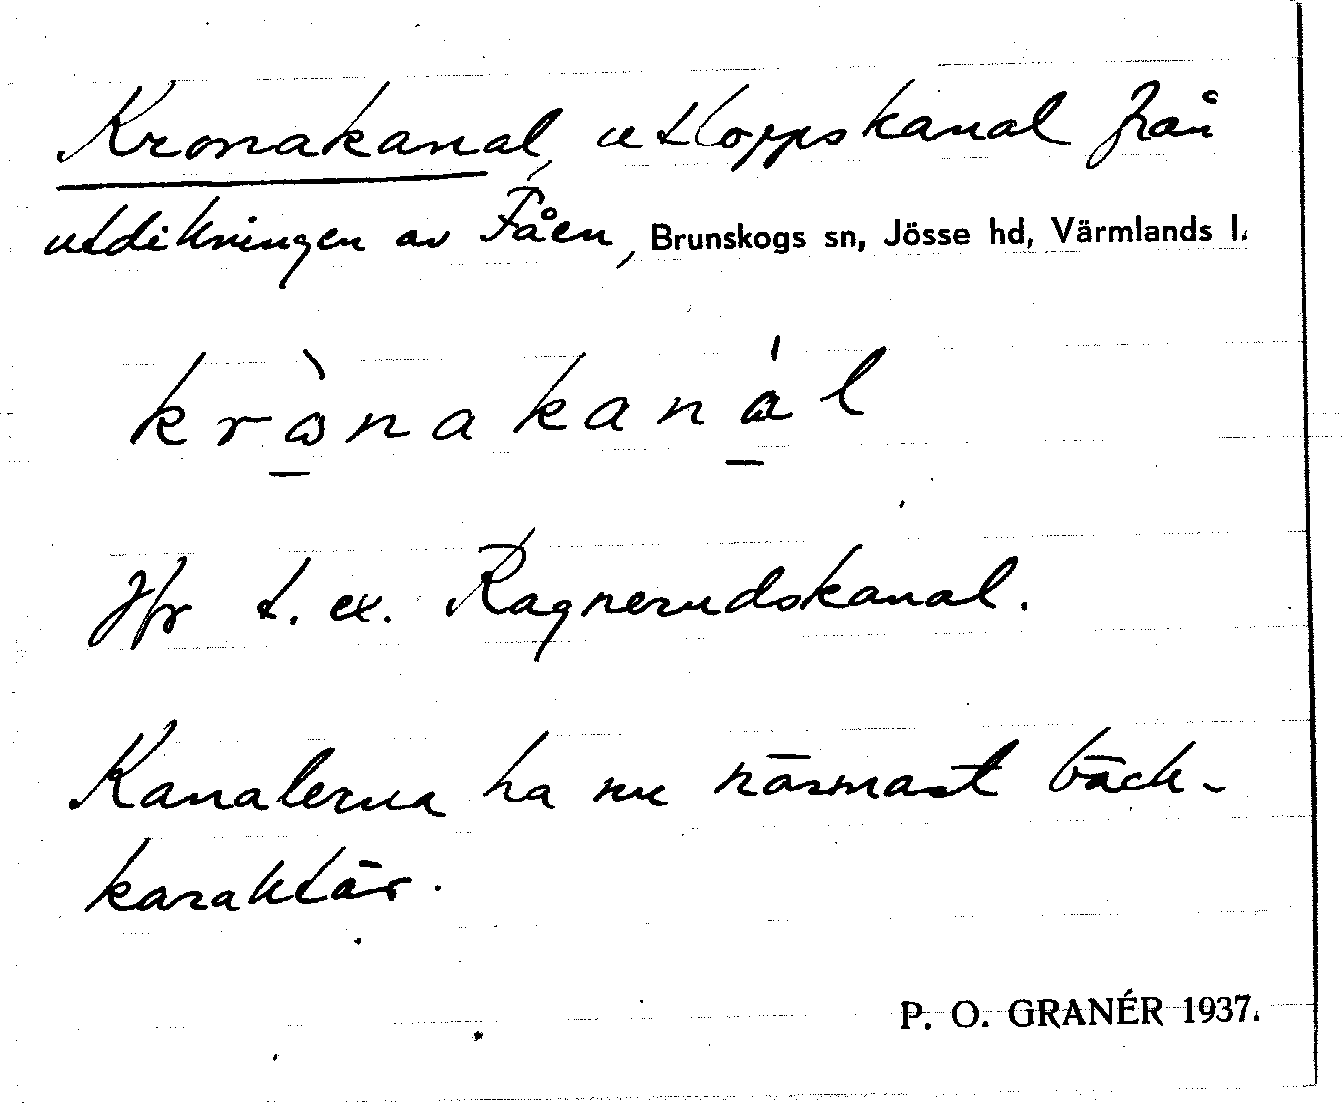 Kronakanal, utloppskanal från
utdikningen av Fåen, Brunskogs sn, Jösse hd, Värmlands l.
krὼ̲nakaná̲l
Jfr t. ex. Ragnerudskanal.
Kanalerna ha nu närmast bäck-
karaktär.
P. O. GRANÉR 1937.